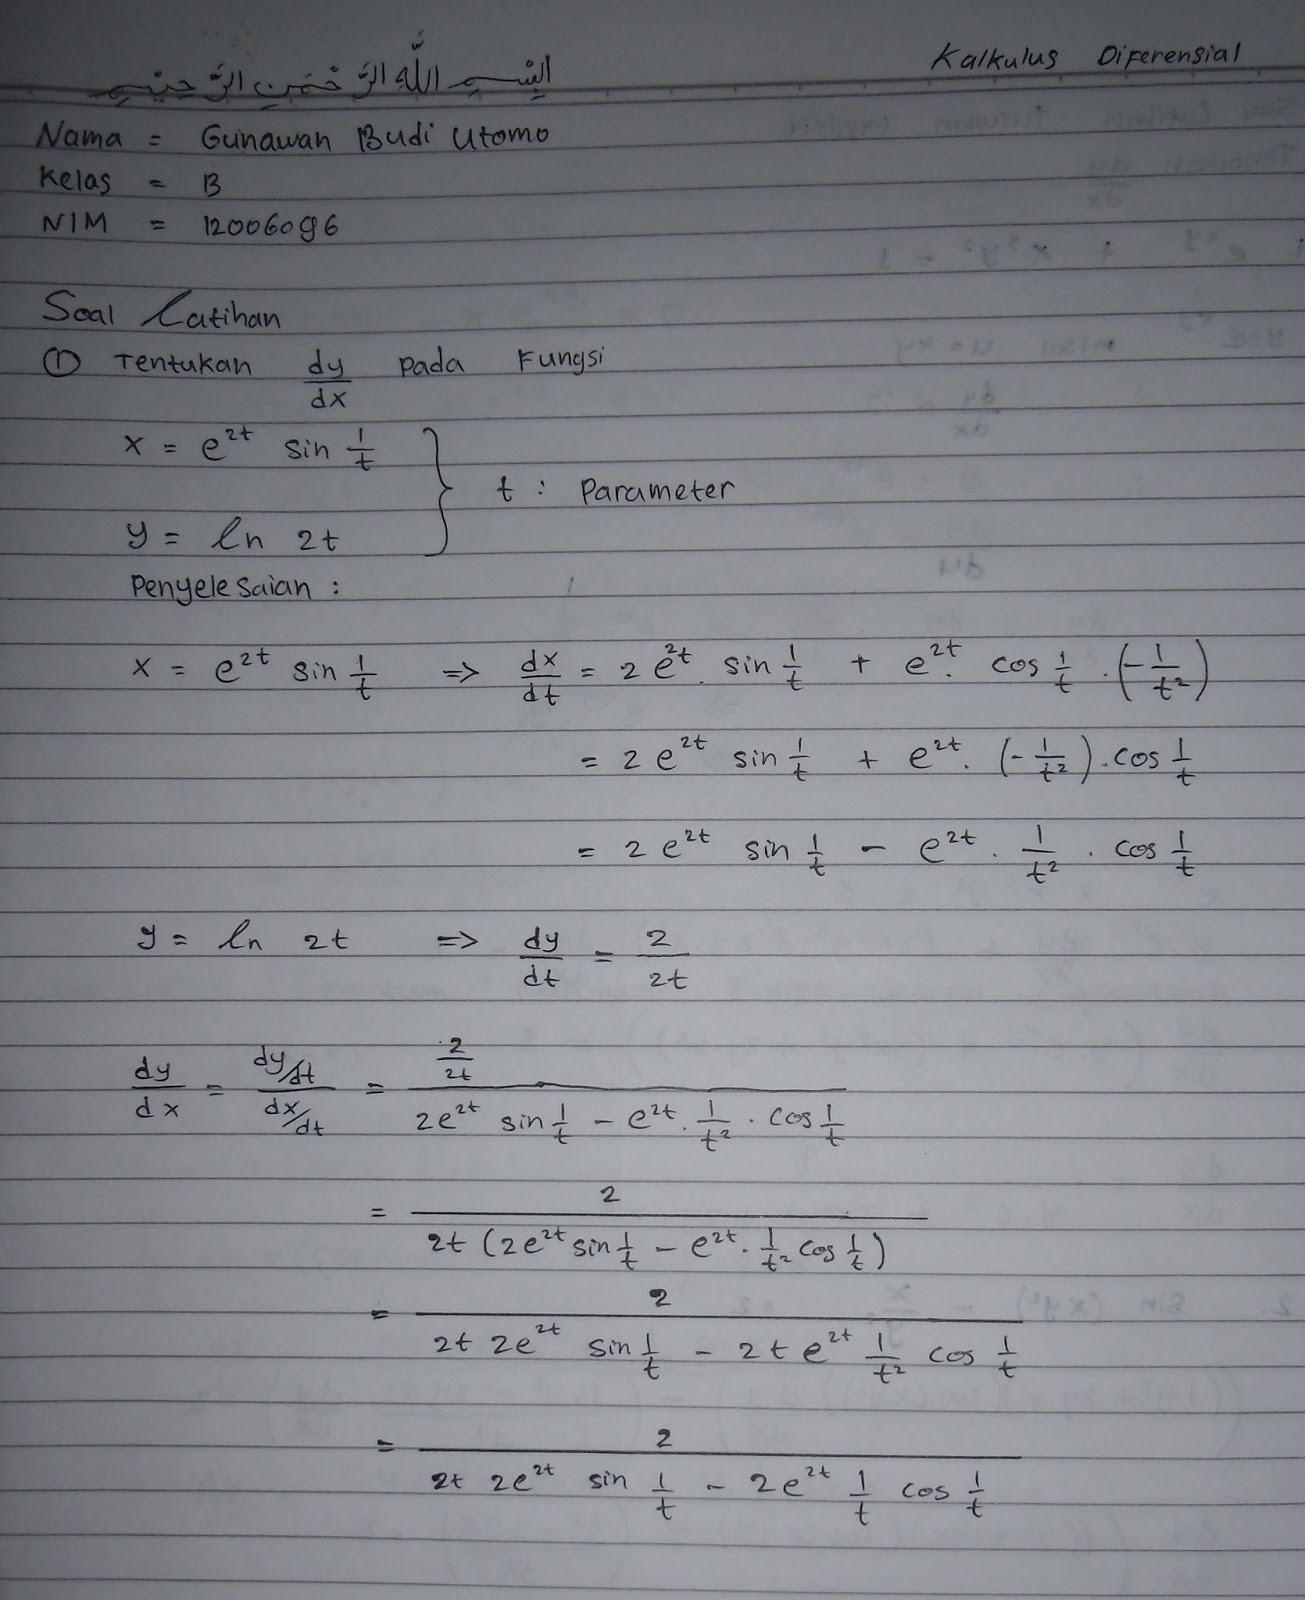 Kalkulus Diferensial
بِسْمِ اللَّهِ الرَّحْمَنِ الرَّحِيْمِ
Nama = Gunawan Budi Utomo
Kelas = B
NIM = 12006096
Soal Latihan
① Tentukan dy/dx pada Fungsi
x = e^2t sin 1/t
t : Parameter
y = ln 2t
Penyelesaian :
x = e^2t sin 1/t => dx/dt = 2 e^2t . sin 1/t + e^2t . cos 1/t . (- 1/t²)
= 2 e^2t sin 1/t + e^2t . (- 1/t²) . cos 1/t
= 2 e^2t sin 1/t - e^2t . 1/t² . cos 1/t
y = ln 2t => dy/dt = 2/2t
dy/dx = (dy/dt)/(dx/dt) = (2/2t)/(2e^2t sin 1/t - e^2t . 1/t² . cos 1/t)
= 2/(2t (2e^2t sin 1/t - e^2t . 1/t² cos 1/t))
= 2/(2t 2e^2t sin 1/t - 2t e^2t 1/t² cos 1/t)
= 2/(2t 2e^2t sin 1/t - 2e^2t 1/t cos 1/t)